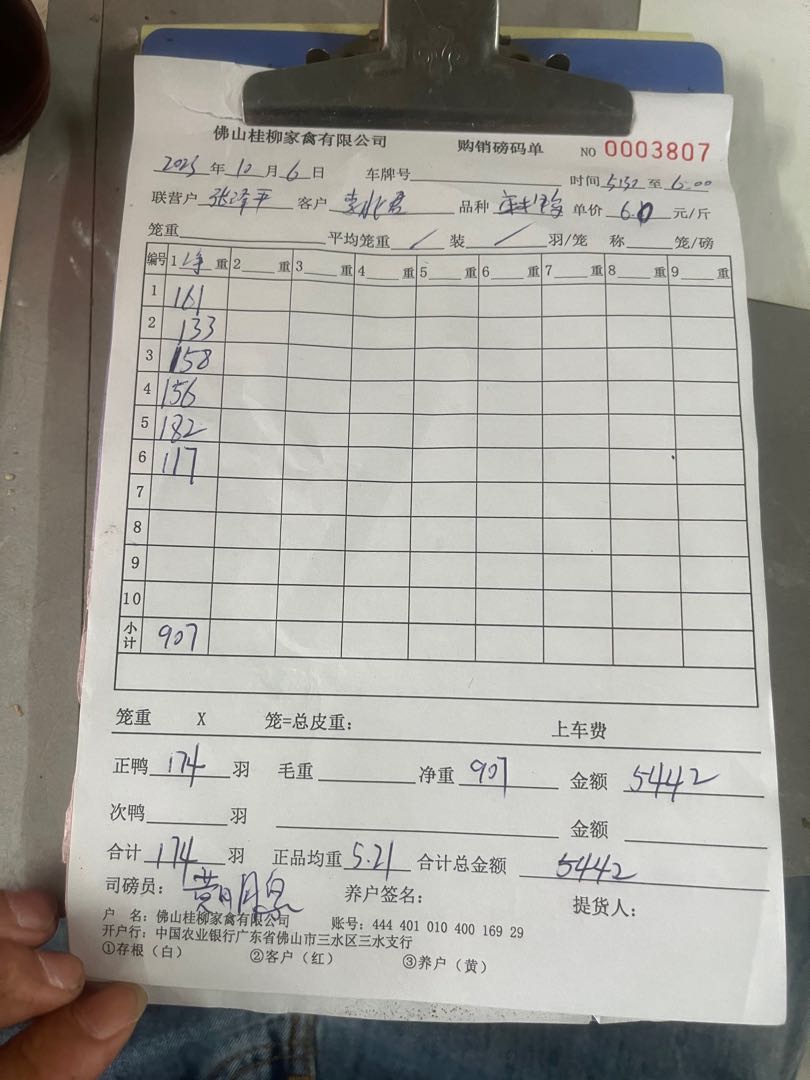 佛山桂柳家禽有限公司 购销磅码单 NO 0003807
2025 年 10 月 6 日 车牌号 时间 5:52 至 6:00
联营户 张泽平 客户 品种 单价 6.0 元/斤
笼重 平均笼重 / 装 / 羽/笼 称 笼/磅
编号 1 净 重 2 重 3 重 4 重 5 重 6 重 7 重 8 重 9 重
1 161
2 133
3 158
4 156
5 182
6 117
7
8
9
10
小计 907
笼重 X 笼=总皮重: 上车费
正鸭 174 羽 毛重 净重 907 金额 5442
次鸭 羽 金额
合计 174 羽 正品均重 5.21 合计总金额 5442
司磅员: 养户签名: 提货人:
户 名: 佛山桂柳家禽有限公司 账号: 444 401 010 400 169 29
开户行: 中国农业银行广东省佛山市三水区三水支行
①存根(白) ②客户(红) ③养户(黄)